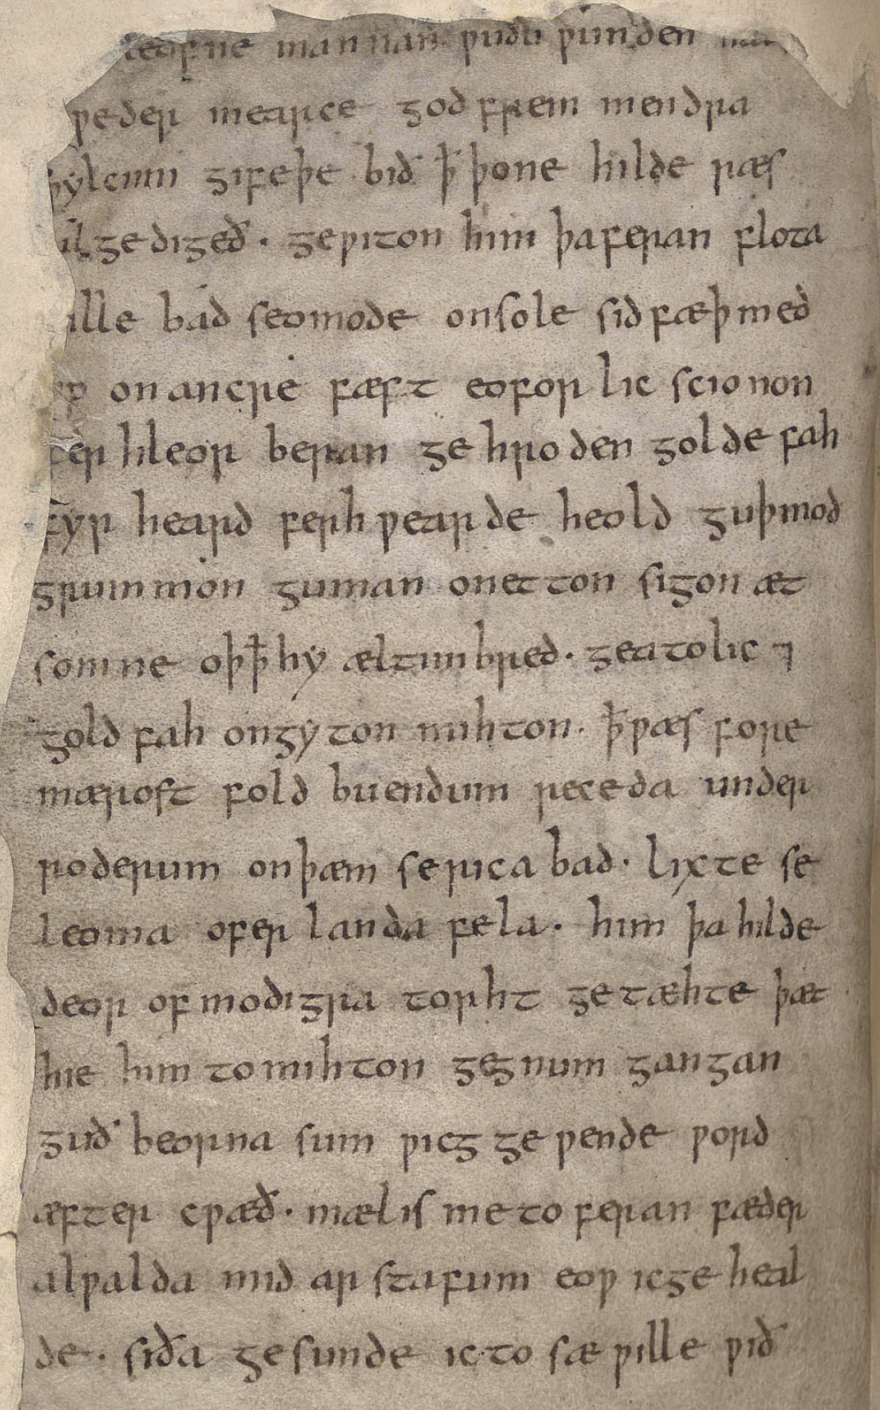 leofne mannan ƿudu ƿunden
ƿeder mearce god frem mendra
ƿylcum gifeþe bið ꝥ þone hilde ræs
al ge digeð · geƿiton him þa feran flota
ille bad seomode onsole sid fæþmed
on ancre fæst eofor lic scionon
fer hleor beran ge hroden golde fah
fyr heard ferh ƿearde heold guþmod
grummon guman onetton sigon æt
somne oþꝥ hy æltimbred · geatolic ⁊
gold fah ongyton mihton · ꝥ ƿæs fore
mærost fold buendum receda under
roderum onþæm se rica bad · lixte se
leoma ofer landa fela · him þa hilde
deor of modigra torht ge tæhte þæt
hie him to mihton gegnum gangan
guð beorna sum ƿicg ge ƿende ƿord
æfter cƿæð · mæl is me to feran fæder
alƿalda mid ar stafum eoƿ ic ge heal
de · siða ge sunde ic to sæ ƿille ƿið